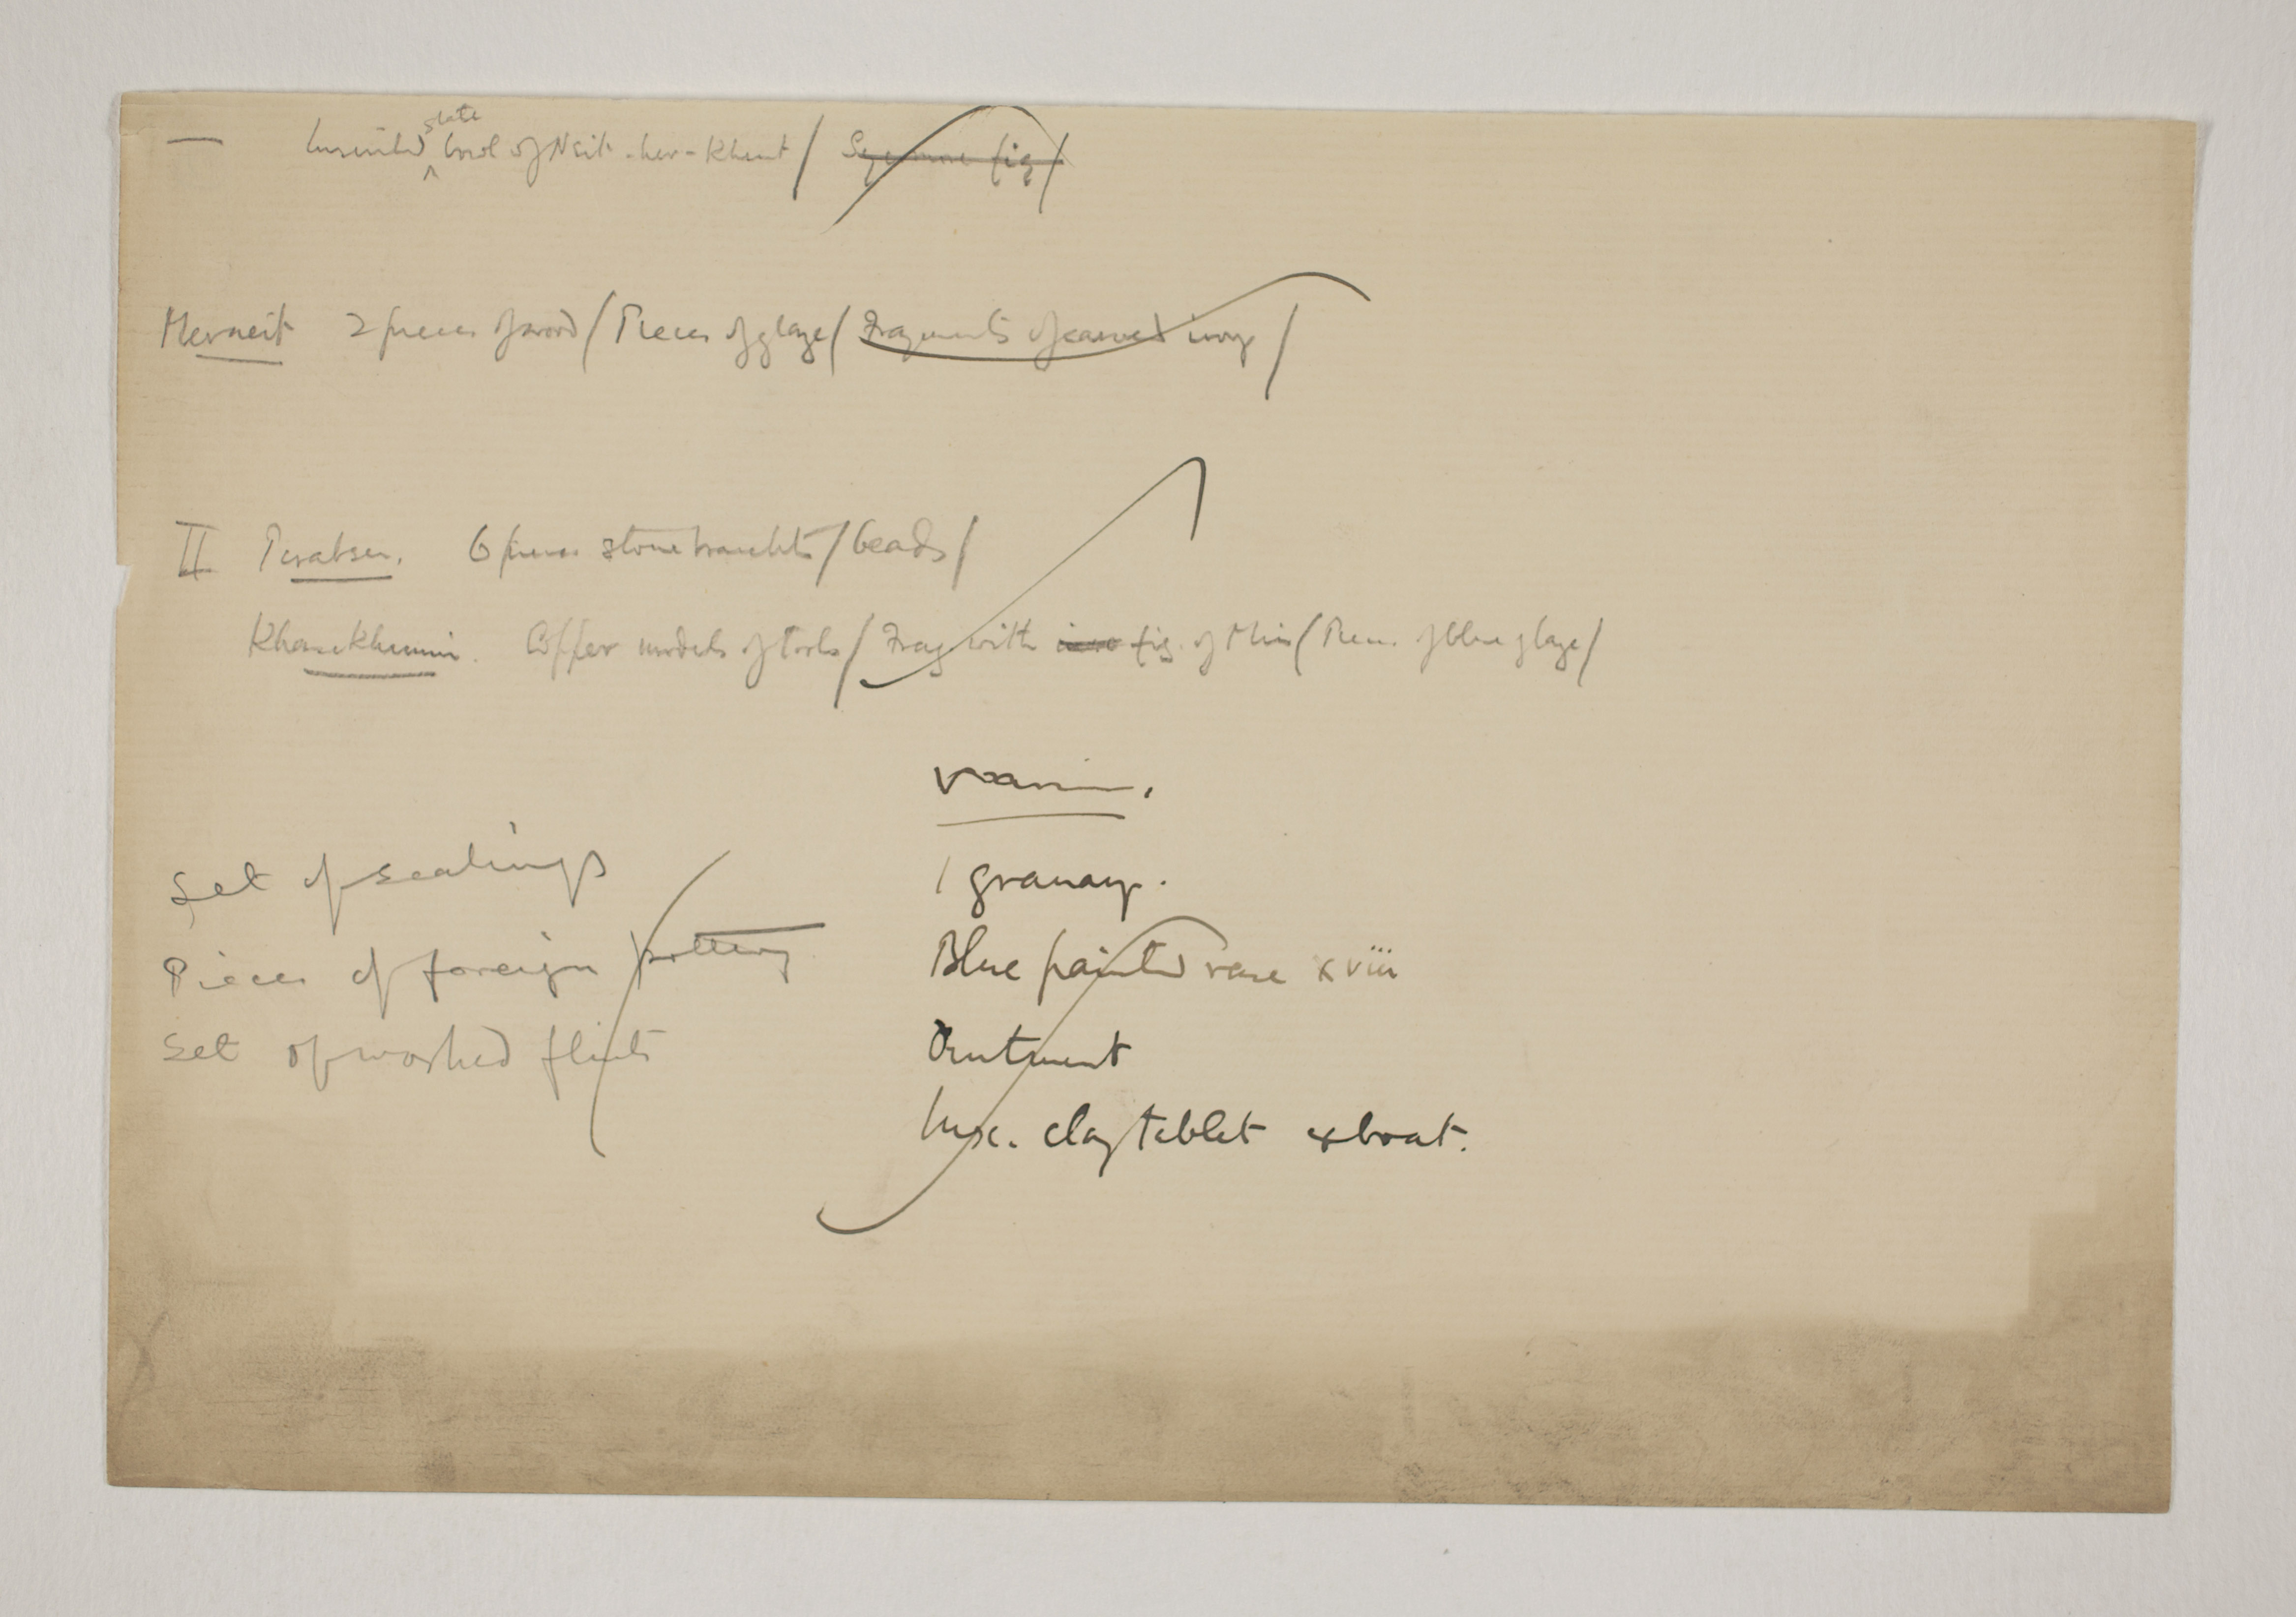 — Inscribed slate bowl of Neit-her-Khent / Sycamore fig /
Merneit 2 pieces of wood / Pieces of glaze / Fragments of carved ivory /
II Perabsen. 6 pieces stone / beads /
Khasekhemui. Copper models of tools / Frag with fig. of Min / Piece of blue glaze /
Various.
Set of sealings
Pieces of foreign pottery
Set of worked flints
1 granary.
Blue painted vase xviii
Ointment
Insc. clay tablet & boat.